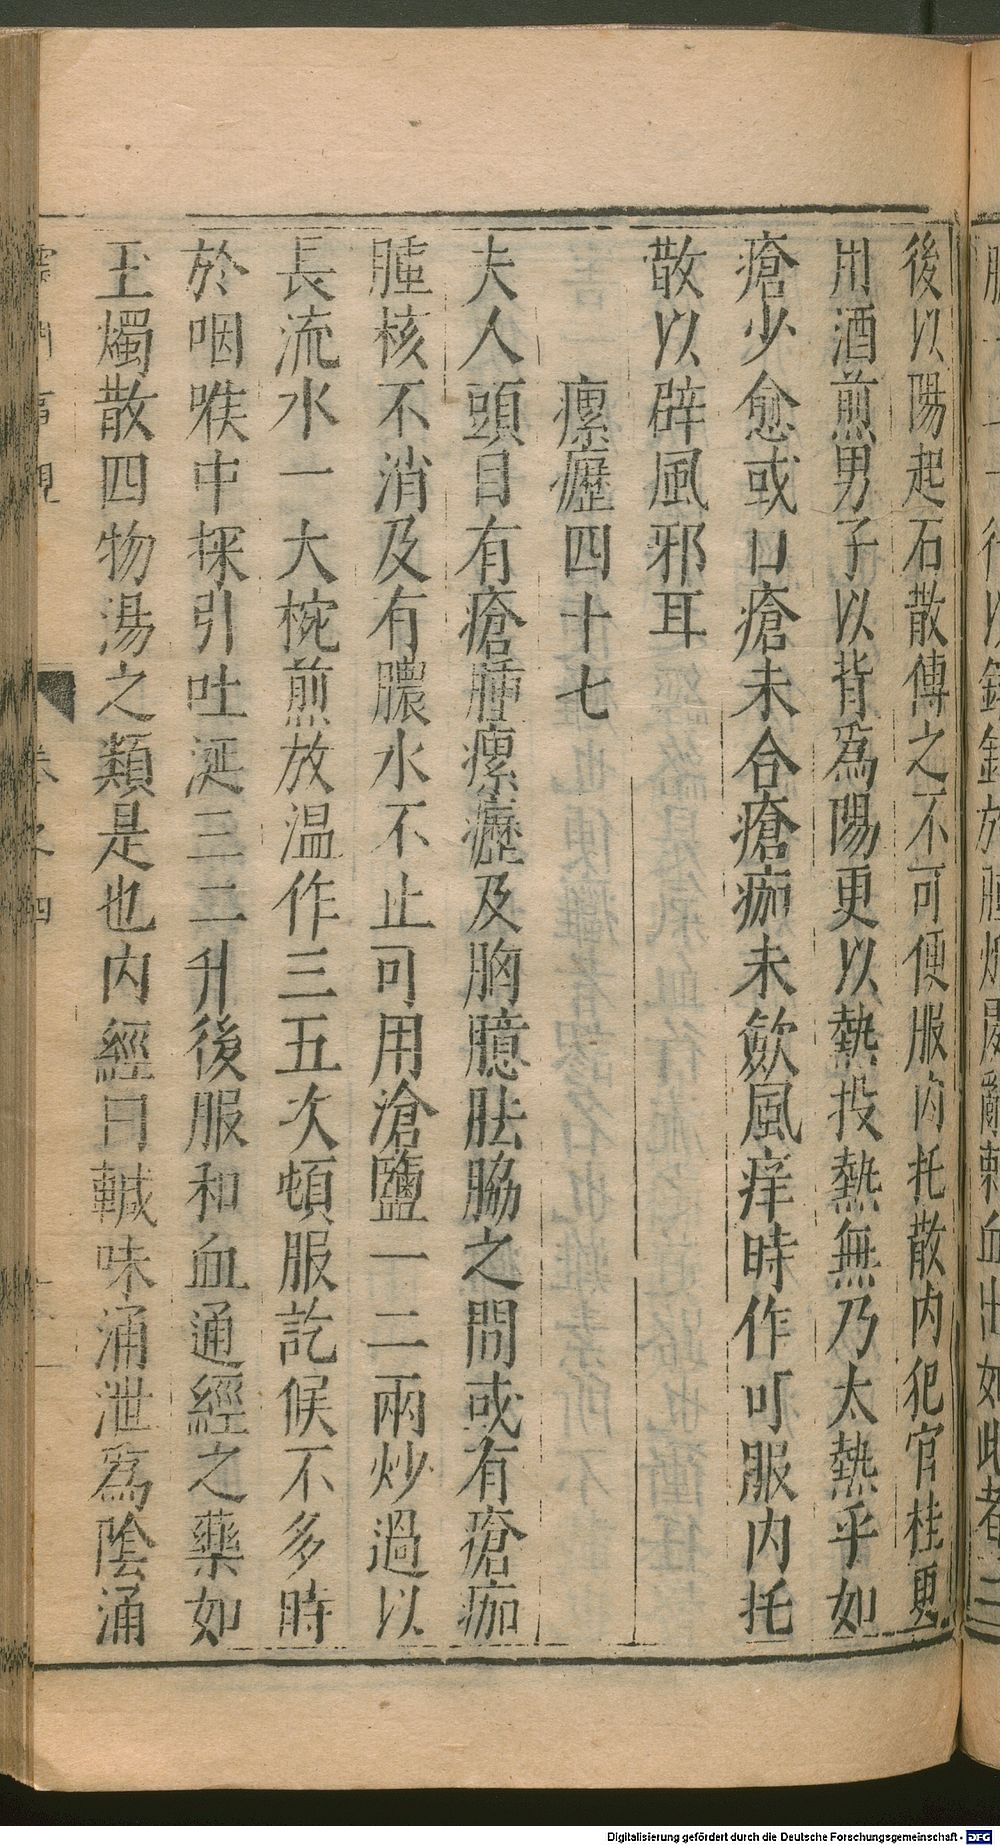 後以陽起石散傅之不可便服內托散内犯官桂更
用酒煎男子以背為陽更以熱投熱無乃太熱乎如
瘡少愈或口瘡未合瘡痂未歛風痒時作可服内托
散以辟風邪耳
瘰癧四十七
夫人頭目有瘡腫瘰癧及胸臆胠脇之間或有瘡痂
腫核不消及有膿水不止可用滄鹽一二兩炒過以
長流水一大椀煎放温作三五次頓服訖候不多時
於咽喉中探引吐涎三二升後服和血通經之藥如
玉燭散四物湯之類是也内經曰鹹味涌泄爲陰涌
事親 卷之四
Digitalisierung gefördert durch die Deutsche Forschungsgemeinschaft - DFG